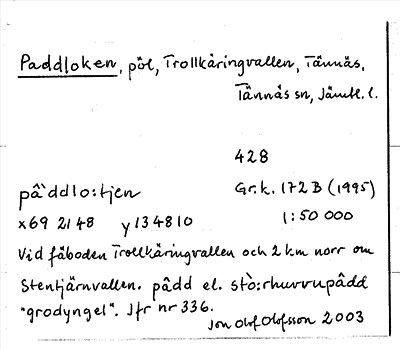 Paddloken, pöl, Trollkäringvallen, Tännäs,
Tännäs sn, Jämtl. l.
428
pâ`ddlo:tjen
Gr.k. 172 B (1995)
x69 21 48 y134810
1:50 000
Vid fäboden Trollkäringvallen och 2 km norr om
Stentjärnvallen. pâdd el. stò:rhuvvupâdd
"grodyngel". Jfr nr 336.
Jon Olof Olofsson 2003